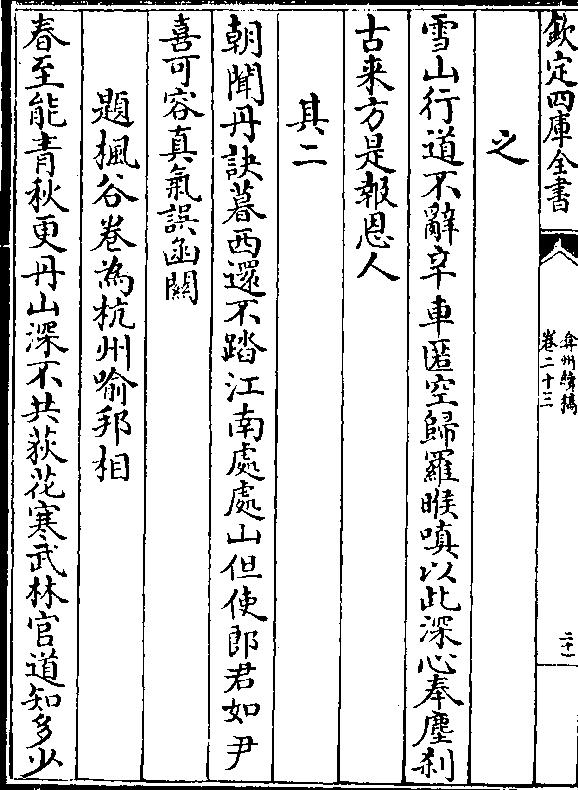 欽定四庫全書
弇州續稿
卷二十三
二十一
之
雪山行道不辭辛車匿空歸羅睺嗔以此深心奉塵刹
古来方是報恩人
其二
朝聞丹訣暮西還不踏江南處處山但使郎君如尹
喜可容真氣誤函關
題楓谷卷為杭州喻邦相
春至能青秋更丹山深不共荻花寒武林官道知多少